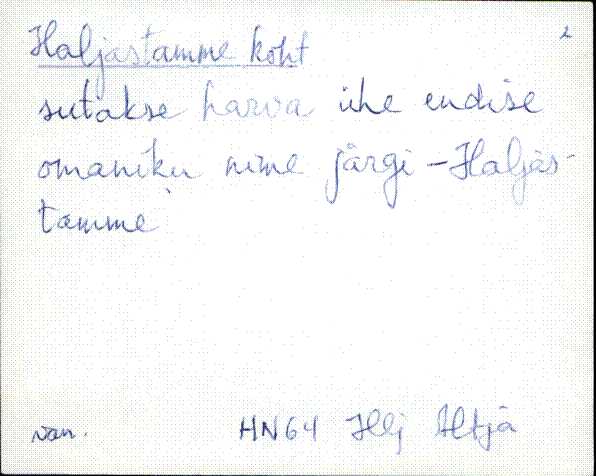 2
Haljastamme koht
sutakse harva ühe endise
omaniku nime järgi - Haljas-
tamme
van. HN64 Hlj Altjä